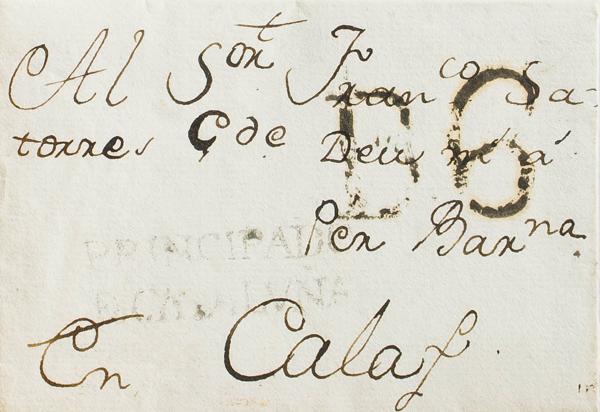 Al Sor. Franco Sa-
torres Q de Deu m a
D6
Per Barna
PRINCIPADO
DE CATALUÑA
En Calaf.